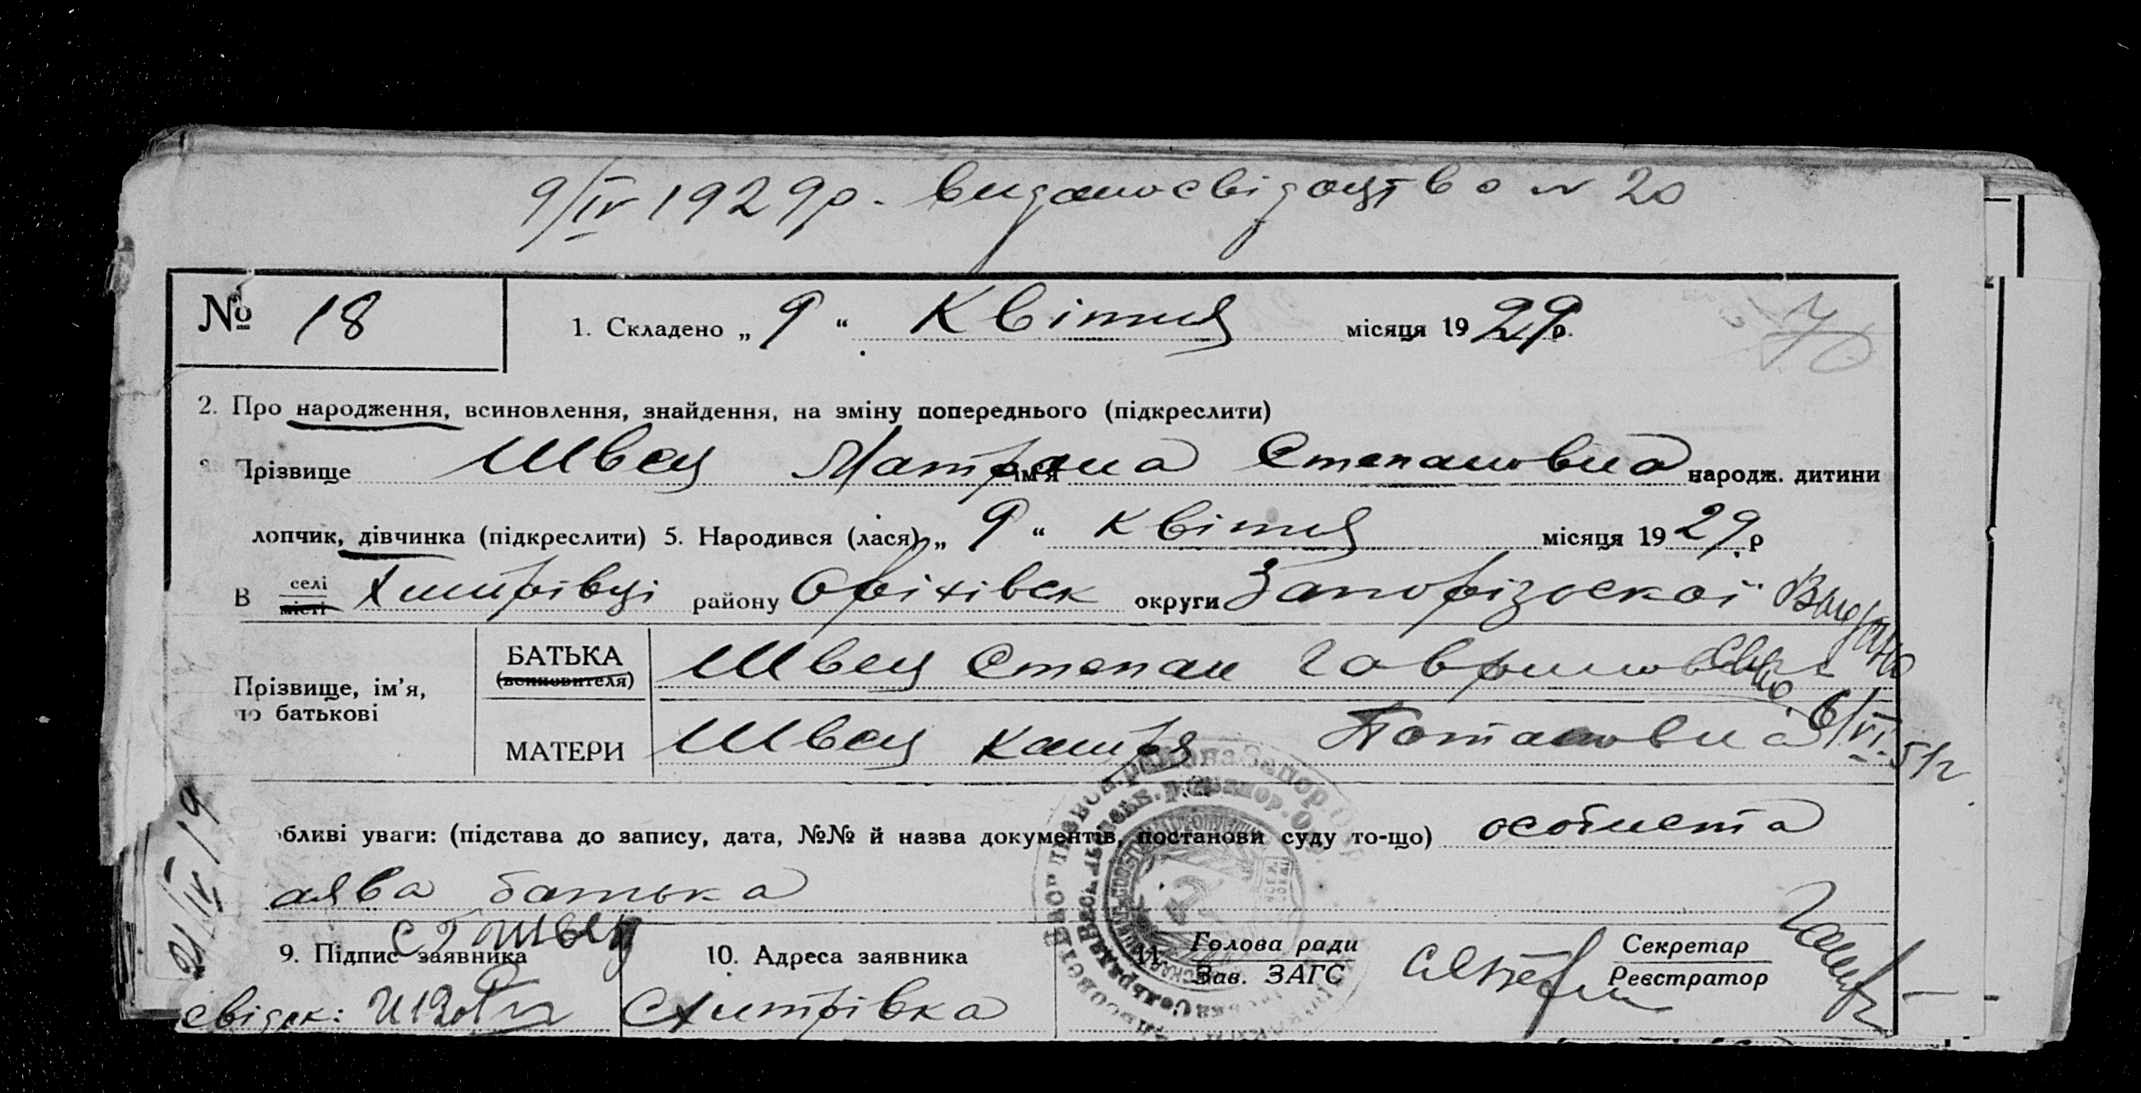 9/IV 1929р. видано свідоцтво N 20
№ 18
1. Складено „ 9 “ Квітня місяця 1929р.
2. Про народження, всиновлення, знайдення, на зміну попереднього (підкреслити)
Прізвище Швец Матрона ім'я Степановна народж. дитини
лопчик, дівчинка (підкреслити) 5. Народився (лася) „ 9 “ Квітня місяця 1929 р
В селі місті Хитрівці району Оріхівск округи Запорізоскої
Видано
Прізвище, ім'я, по батькові
БАТЬКА (всиновителя) Швец Степан Гаврилович
МАТЕРИ Швец Катря Потаповна
6/VI 51г.
бливі уваги: (підстава до запису, дата, №№ й назва документів, постанови суду то-що) особиста
аява батька
21/IV 19
9. Підпис заявника С Г Швец
10. Адреса заявника
11. Голова ради Зав. ЗАГС
Секретар Реєстратор
свідок:
С Хитрівка